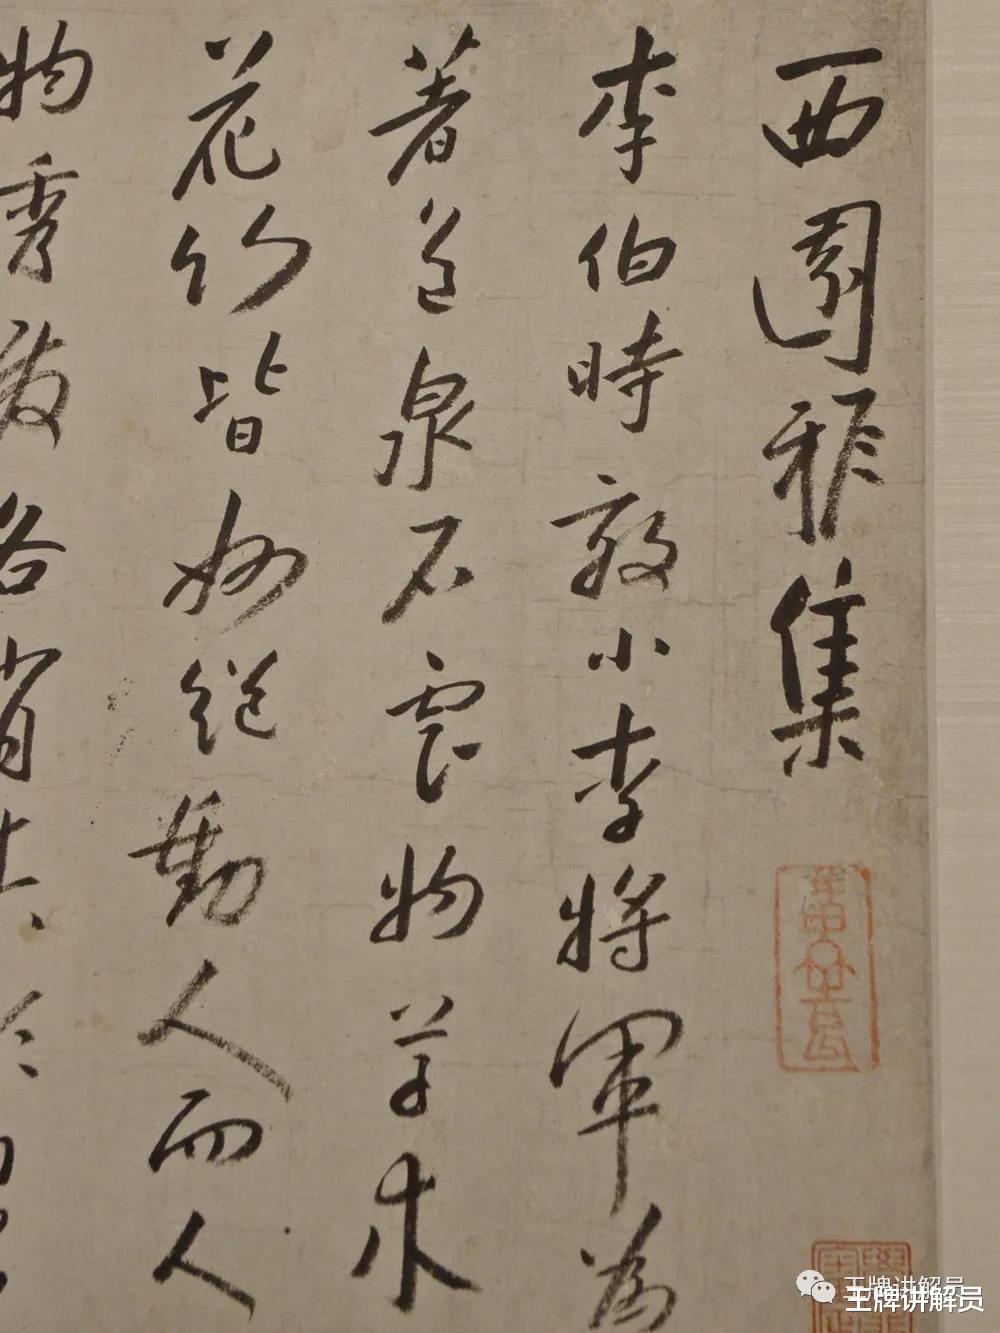 西園雅集
李伯時效小李將軍為
著色泉石雲物草木
花竹皆妙絕動人而人
物秀發各肖其
王牌讲解员
王牌讲解员